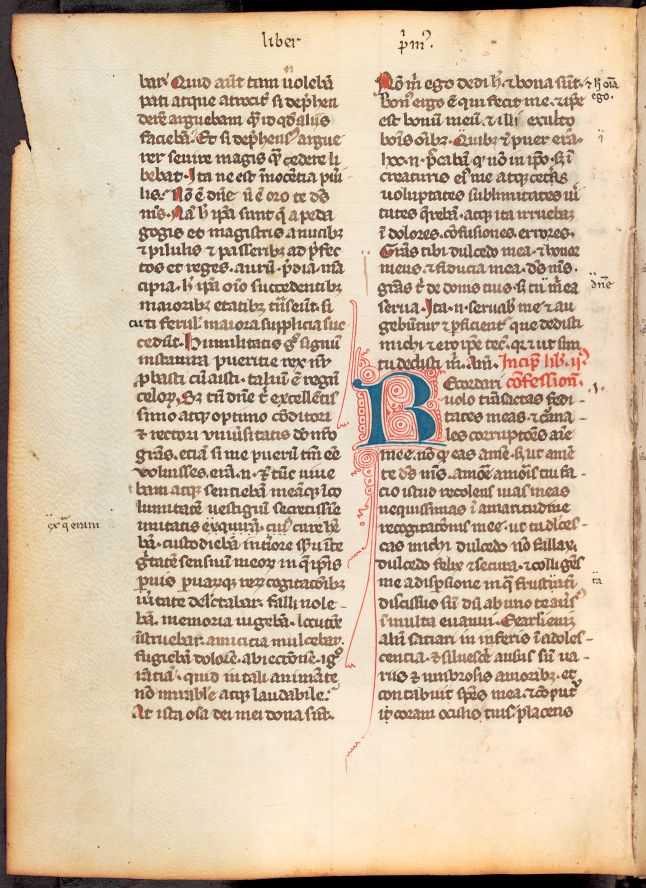 liber p̄m⁹.
bar? Quid aūt tam nolebā
pati atque atrocit̄ si dep̄hen
derē arguebam q̄ id qd̓ aliis
faciebā? Et si dep̄hensꝰ argue
rer seuire magis q̄ cedere li
bebat. Ista ne est īnocētia pue
lis? Nō ē dn̄e n̄ ē oro te dꝰs
mꝰs. Nā h̓ ip̄a sunt q̄ a peda
gogis et magistris a nucibꝫ
⁊ pilulis ⁊ passeribꝫ ad p̄fec
tos et reges. aurū p̄dia mā
cipia. h̓ ip̄a oīo succedentibꝫ
maioribꝫ etatibꝫ trāseūt. si
cuti ferul̓ maiora supplicia suc
cedūt. Humilitatis gͦ signū
in statura pueritie rex nr̄
ꝓbasti cū aisti. taliū ē regnū
celoꝝ. Sꝫ tn̄ dn̄e t̓ excellētis
simo atqꝫ optimo cōditori
⁊ rectori vniūsitatis dō nr̄o
grās. etiā si me puerū tm̄ eē
voluisses. erā. n̄. ⁊ tūc viue
bam atqꝫ sentiebā meāqꝫ īco
lumitatē uestigiū secretissime
unitatis ex qͣ erā. cure hē
bā. custodiebā īt̓iore sēsu īte
gͥtatē sensuū meoꝝ in q̄ ip̄is
puis puarūqꝫ rerū cogitatōibꝫ
ūitate delc̄tabar. falli nole
bā. memoria uigebā. locutōe
īstruebar. amicitia mulcebar.
fugiebā dolorē. abiectōnē. ig
rātiā. quid in tali animāte
nō mirabil̓e atqꝫ laudabile?
At ista oīa dei mei dona sūt.
ex q̄ eram
Nō m̄ ego dedi h̓. ⁊ bona sūt.
⁊ h̓ oīa
ego.
Bonꝰ ergo ē qui fecit me. ⁊ ip̄e
est bonū meū. ⁊ illi exulto
bōis oībꝫ. Quibꝫ ⁊ puer erā.
hoc. n̄. p̄cabā q̄ nō in ip̄o. sꝫ ī
creaturis eiꝰ me atqꝫ cet̓is
uoluptates sublimitates ui
tates q̄rebā. atqꝫ ita irruebā
ī dolores. cōfusiones. errores.
Grās tibi dulcedo mea. ⁊ honor
meus. ⁊ fiducia mea. dꝰs mꝰs.
grās t̓ de donis tuis. sꝫ tu m̄ ea
dn̄e
serua. Ita. n̄. seruab̓ me ⁊ au
gebūtur ⁊ ꝑficient̄ que dedisti
michi. ⁊ ero ip̄e tecū. qꝛ ut sim
tu dedisti m̄. Am̄. Incip̄ lib̓. ijꝰ
Recordari cōfessionū.
uolo trāsactas fedi
tates meas. ⁊ carna
les corruptōes aīe
mee. nō q̄ eas amē. sꝫ ut amē
te dꝰs mꝰs. amōe amōis tui fa
cio istud recolens uias meas
nequissimas ī amaritudine
recogitatōnis mee. ut tu dulces
cas michi dulcedo nō fallax.
dulcedo felix ⁊ secura. ⁊ colligēs
me a disp̄sione in q̄ frustati
ta
discissus sū. dū ab uno te auūsꝰ
ī multa euanui. Exarsi enī
aliā satiari in inferis ī adoles-
cencia. ⁊ siluesc̄e ausus sū ua-
riis ⁊ umbrosis amoribꝫ. et
contabuit spēs mea. ⁊ cōput
ui coram oculis tuis. placens